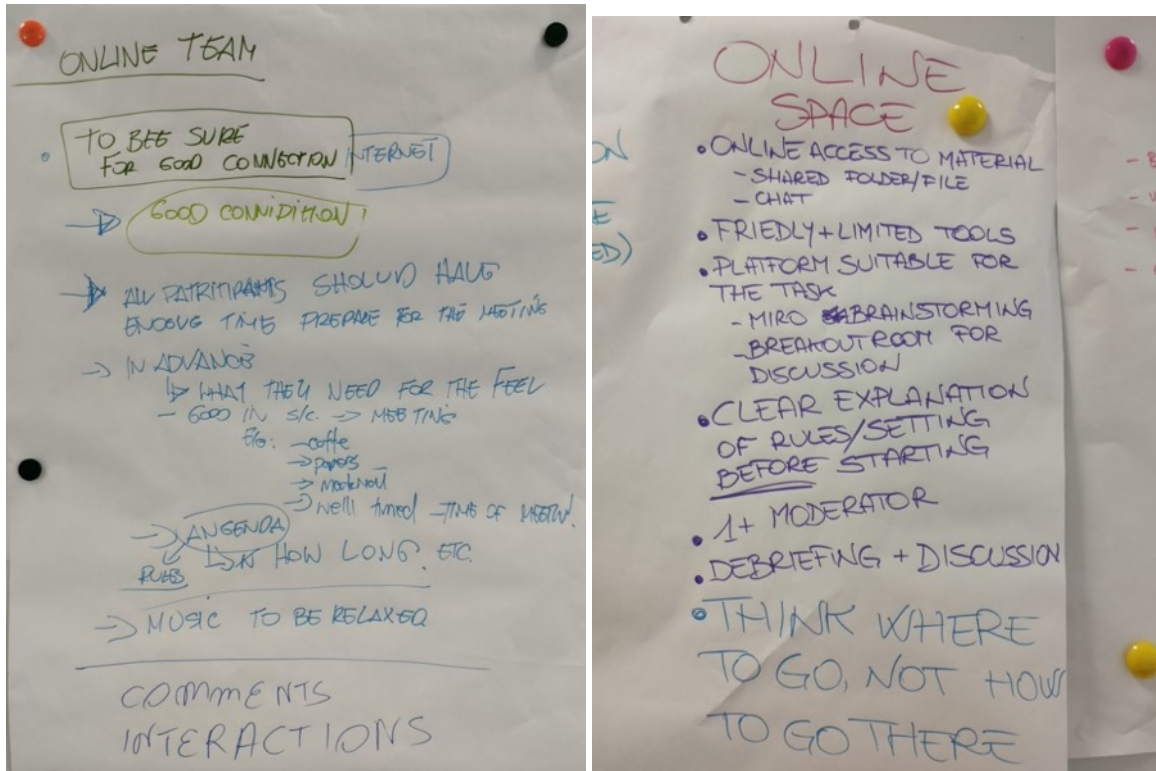 ONLINE TEAM
TO BEE SURE
FOR GOOD CONNECTION INTERNET
GOOD CONNIDITION
ALL SHOULD HAVE
TIME PREPARE FOR THE MEETING
→ IN ADVANCE
↳ WHAT THEY NEED FOR THE FEEL
- GOOD IN S/C. → MEETING
E.G: → coffe
→
→
→ well tuned - TIME OF
→ ANGENDA
RULES ↳ HOW LONG. ETC.
→ MUSIC TO BE RELAXED
COMMENTS
INTERACTIONS
ONLINE
SPACE
• ONLINE ACCESS TO MATERIAL
- SHARED FOLDER/FILE
- CHAT
• FRIEDLY + LIMITED TOOLS
• PLATFORM SUITABLE FOR
THE TASK
- MIRO BRAINSTORMING
- BREAKOUT ROOM FOR
DISCUSSION
• CLEAR EXPLANATION
OF RULES/SETTING
BEFORE STARTING
• 1+ MODERATOR
• DEBRIEFING + DISCUSSION
• THINK WHERE
TO GO, NOT HOW
TO GO THERE
ON
E
ED)